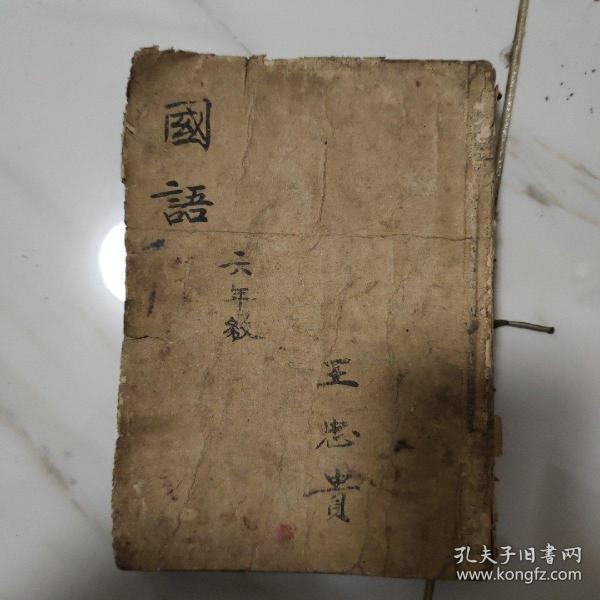 國語
六年級
王忠貴
孔夫子旧書网
www.kongfz.com